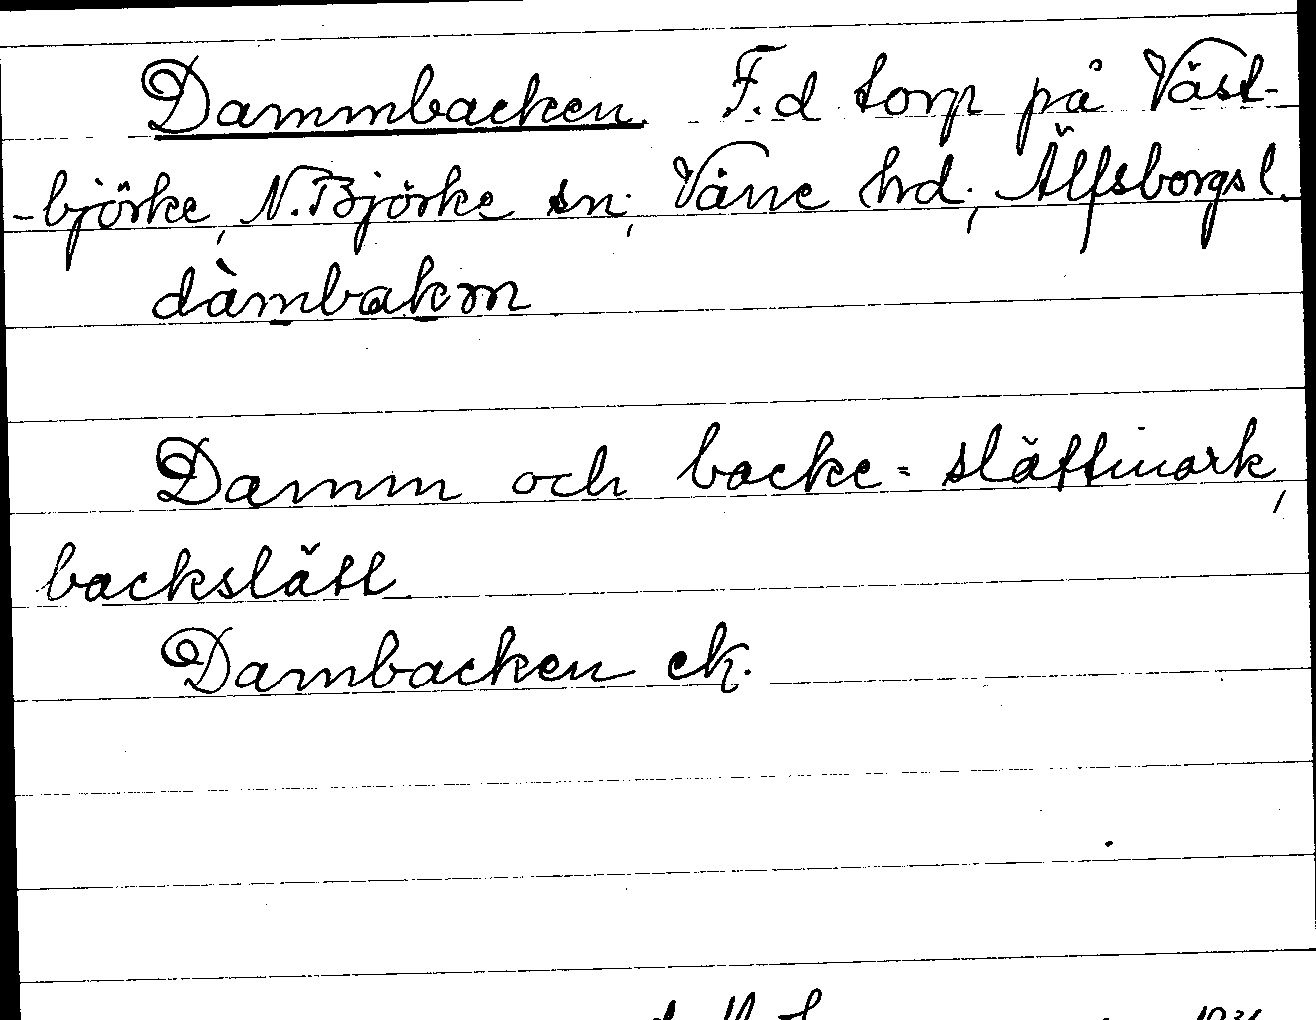 Dammbacken. F.d torp på Väst-
-björke, N. Björke sn; Väne hd; Älfsborgs l.
dàmbakm
Damm och backe = slättmark,
backslätt.
Dambacken ek.